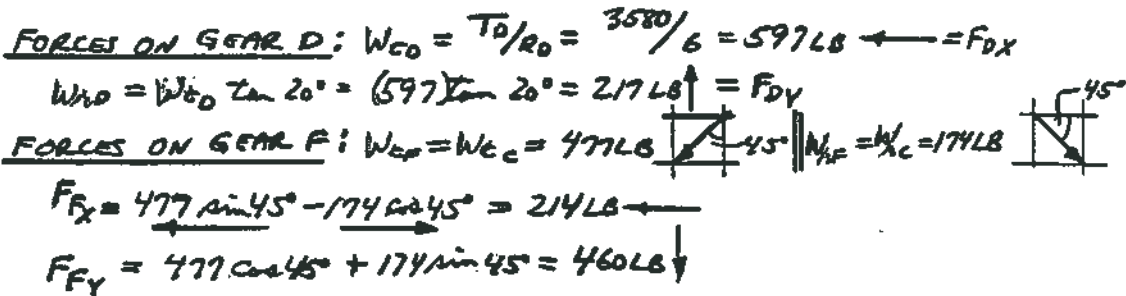 FORCES ON GEAR D: WtD = TD/RD = 3580/6 = 597 LB ← = FDX
WrD = WtD tan 20° = (597)tan 20° = 217 LB ↑ = FDY
FORCES ON GEAR F: WtF = WtC = 477 LB 45° WrF = WrC = 174 LB 45°
FFX = 477 sin 45° - 174 cos 45° = 214 LB ←
FFY = 477 cos 45° + 174 sin 45° = 460 LB ↓